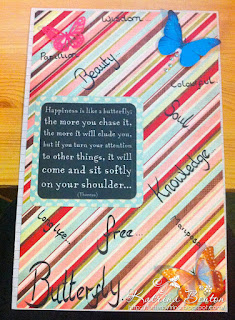 Wisdom..
Papillon
Beauty
Colourful
Happiness is like a butterfly:
the more you chase it,
the more it will elude you,
but if you turn your attention
to other things, it will
come and sit softly
on your shoulder...
(Thoreau)
Soul
Knowledge
Long life...
free...
Mariposa
Butterfly
Katrina Benton